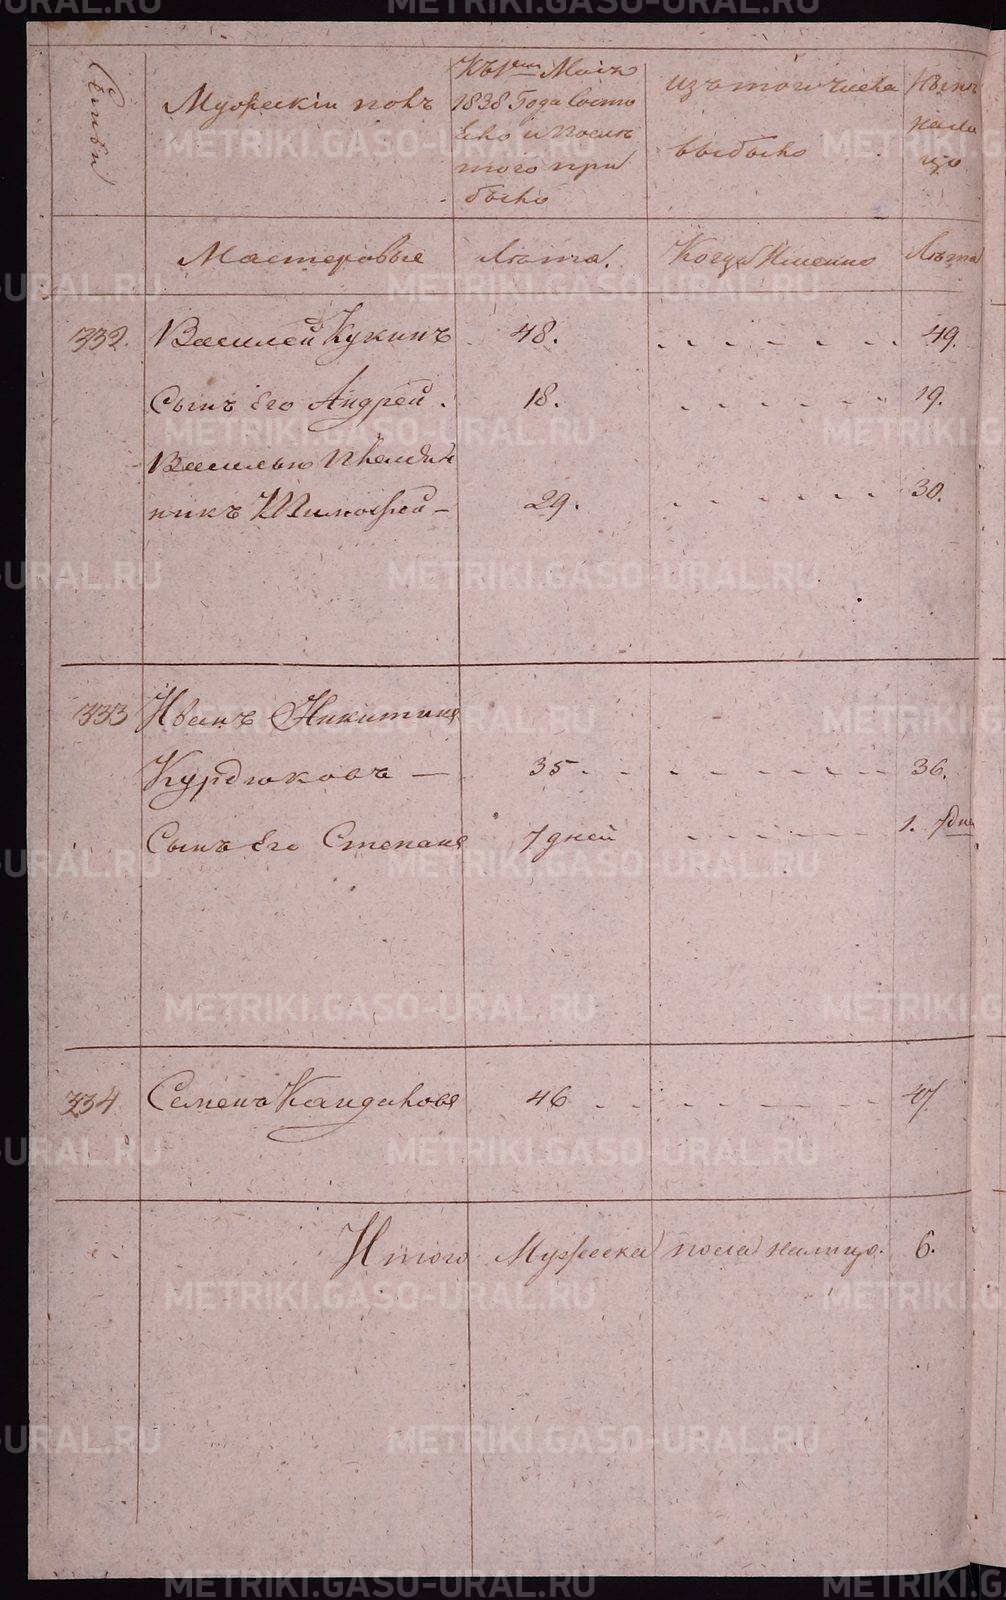 Семьи
Мужескій полъ
Къ 1му Маія
1838 Года Состо
яло и после
того при
было
изъ того числа
выбыло
Ныне
нали
цо
Мастеровые
Лѣта.
Когда Именно
Лѣта
332. Василей Кукинъ 48. 49.
Сынъ Его Андрей. 18. 19.
Василью племян
никъ Тимофей – 29. 30.
333 Иванъ Никитинъ
Курдюковъ — 35 36.
Сынъ Его Степанъ 7 дней 1. 7 дне
334 Семенъ Кандаковъ 46 47.
Итого Мужеска пола налицо. 6.
METRIKI.GASO-URAL.RU